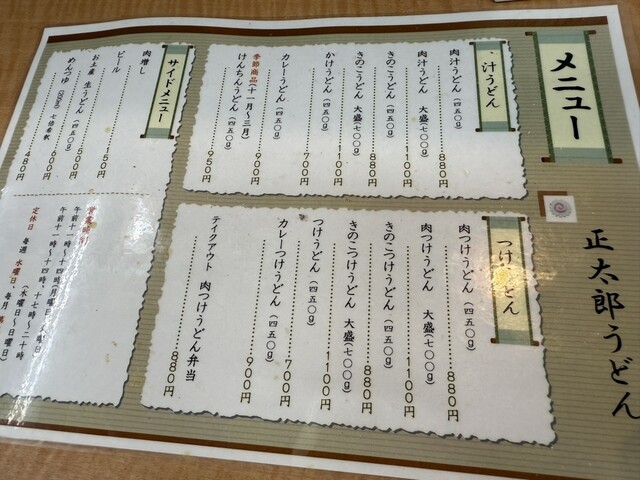 メニュー
正太郎うどん
汁うどん
肉汁うどん(四五〇g) 880円
肉汁うどん 大盛(七〇〇g) 1100円
きのこうどん(四五〇g) 880円
きのこうどん 大盛(七〇〇g) 1100円
かけうどん(四五〇g) 700円
カレーうどん(四五〇g) 900円
季節商品(十一月〜三月)
けんちんうどん(四五〇g) 950円
つけうどん
肉つけうどん(四五〇g) 880円
肉つけうどん 大盛(七〇〇g) 1100円
きのこつけうどん(四五〇g) 880円
きのこつけうどん 大盛(七〇〇g) 1100円
つけうどん(四五〇g) 700円
カレーつけうどん(四五〇g) 900円
テイクアウト 肉つけうどん弁当 880円
サイドメニュー
肉増し 150円
ビール 500円
お土産 生うどん(四五〇g) 600円
めんつゆ 七倍希釈 480円
午前十一時〜十四時(月曜日〜日曜日)
午前十一時〜十四時、十七時〜二十時
(木曜日〜日曜日)
定休日 毎週 水曜日 毎月